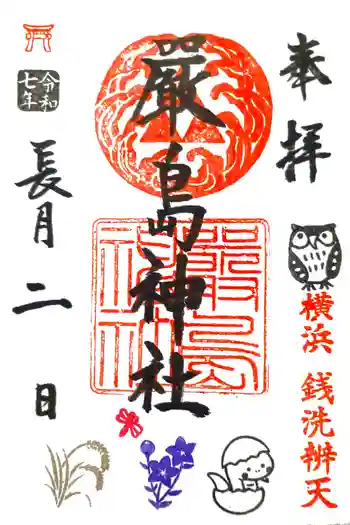 奉拝
横浜 銭洗辨天
嚴島神社
嚴島神社
令和七年
長月二日